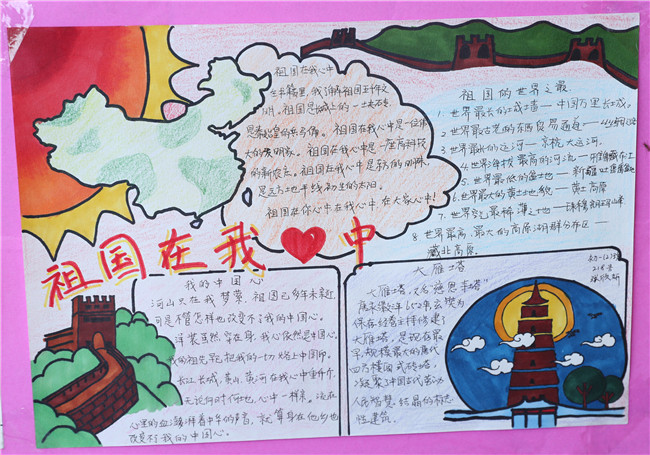 祖国在我心中
祖国在我心中
是我们可爱的
祖国在我心中是一位伟
大的发明家。祖国在我心中是一座高科技
的新农庄。祖国在我心中是东方的明珠,
是远方地平线初生的太阳。
祖国在你心中在我心中,在大家心中!
祖国的世界之最
1、世界最长的城墙——中国万里长城。
2、世界最古老的东西贸易通道——丝绸之路
3、世界最长的运河——京杭大运河。
4、世界海拔最高的河流——雅鲁藏布江
5、世界最低的盆地——新疆吐鲁番盆地
6、世界最大的黄土地貌——黄土高原
7、世界空气最稀薄之地——珠穆朗玛峰
8、世界最高、最大的高原湖群分布区——
藏北高原
祖国在我中
我的中国心
河山只在我梦萦,祖国已多年未亲近,
可是不管怎样也改变不了我的中国心。
洋装虽然穿在身,我心依然是中国心。
我的祖先早把我的一切烙上中国印。
长江,长城,黄山,黄河在我心中重千斤。
无论何时何地,心中一样亲。流在
心里的血,澎湃着中华的声音,就算身在他乡也
改变不了我的中国心。
大雁塔
大雁塔,又名"慈恩寺塔"
唐永徽三年(652年)玄奘为
保存经卷主持修建了
大雁塔,是现存最
早、规模最大的唐代
四方楼阁式砖塔,
凝聚了中国古代劳动
人民智慧结晶的标志
性建筑。
初一(12)班
21号